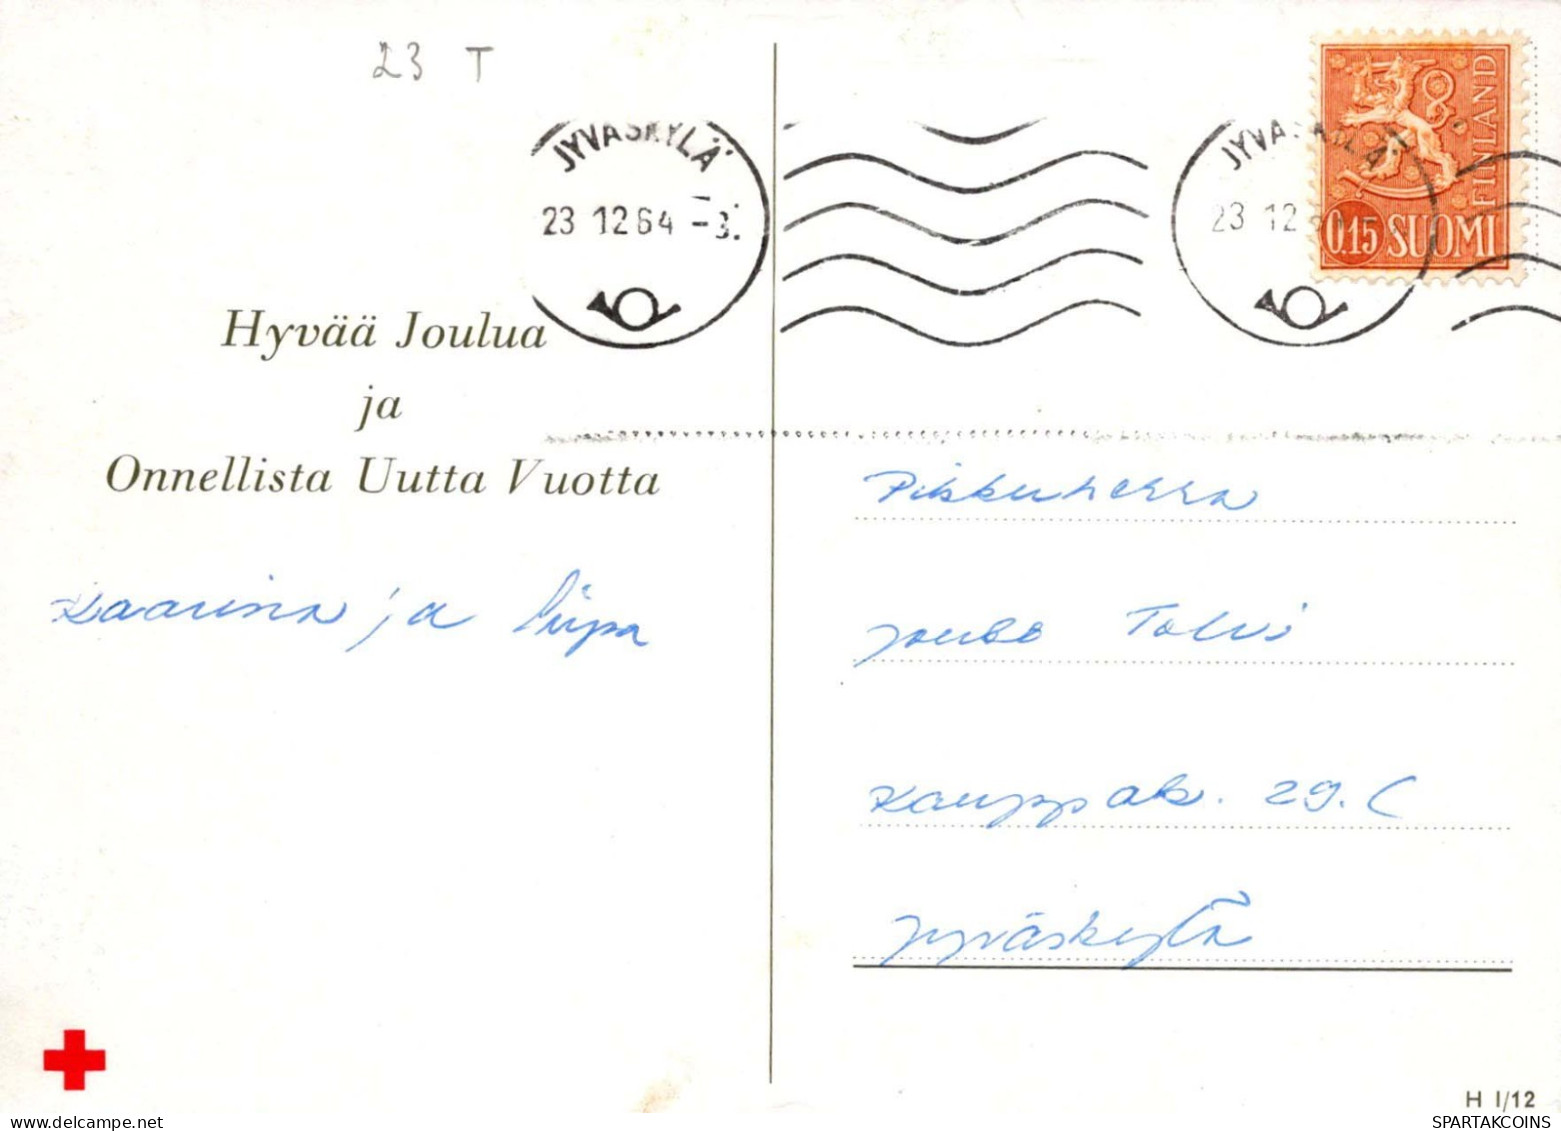 23 T
JYVÄSKYLÄ
23 12 64
JYVÄSKYLÄ
23 12
FINLAND
0.15 SUOMI
Hyvää Joulua
ja
Onnellista Uutta Vuotta
Kaarina ja
Pikkuherra
Jouko
Kauppak. 29. C
Jyväskylä
H I/12
SPARTAKCOINS